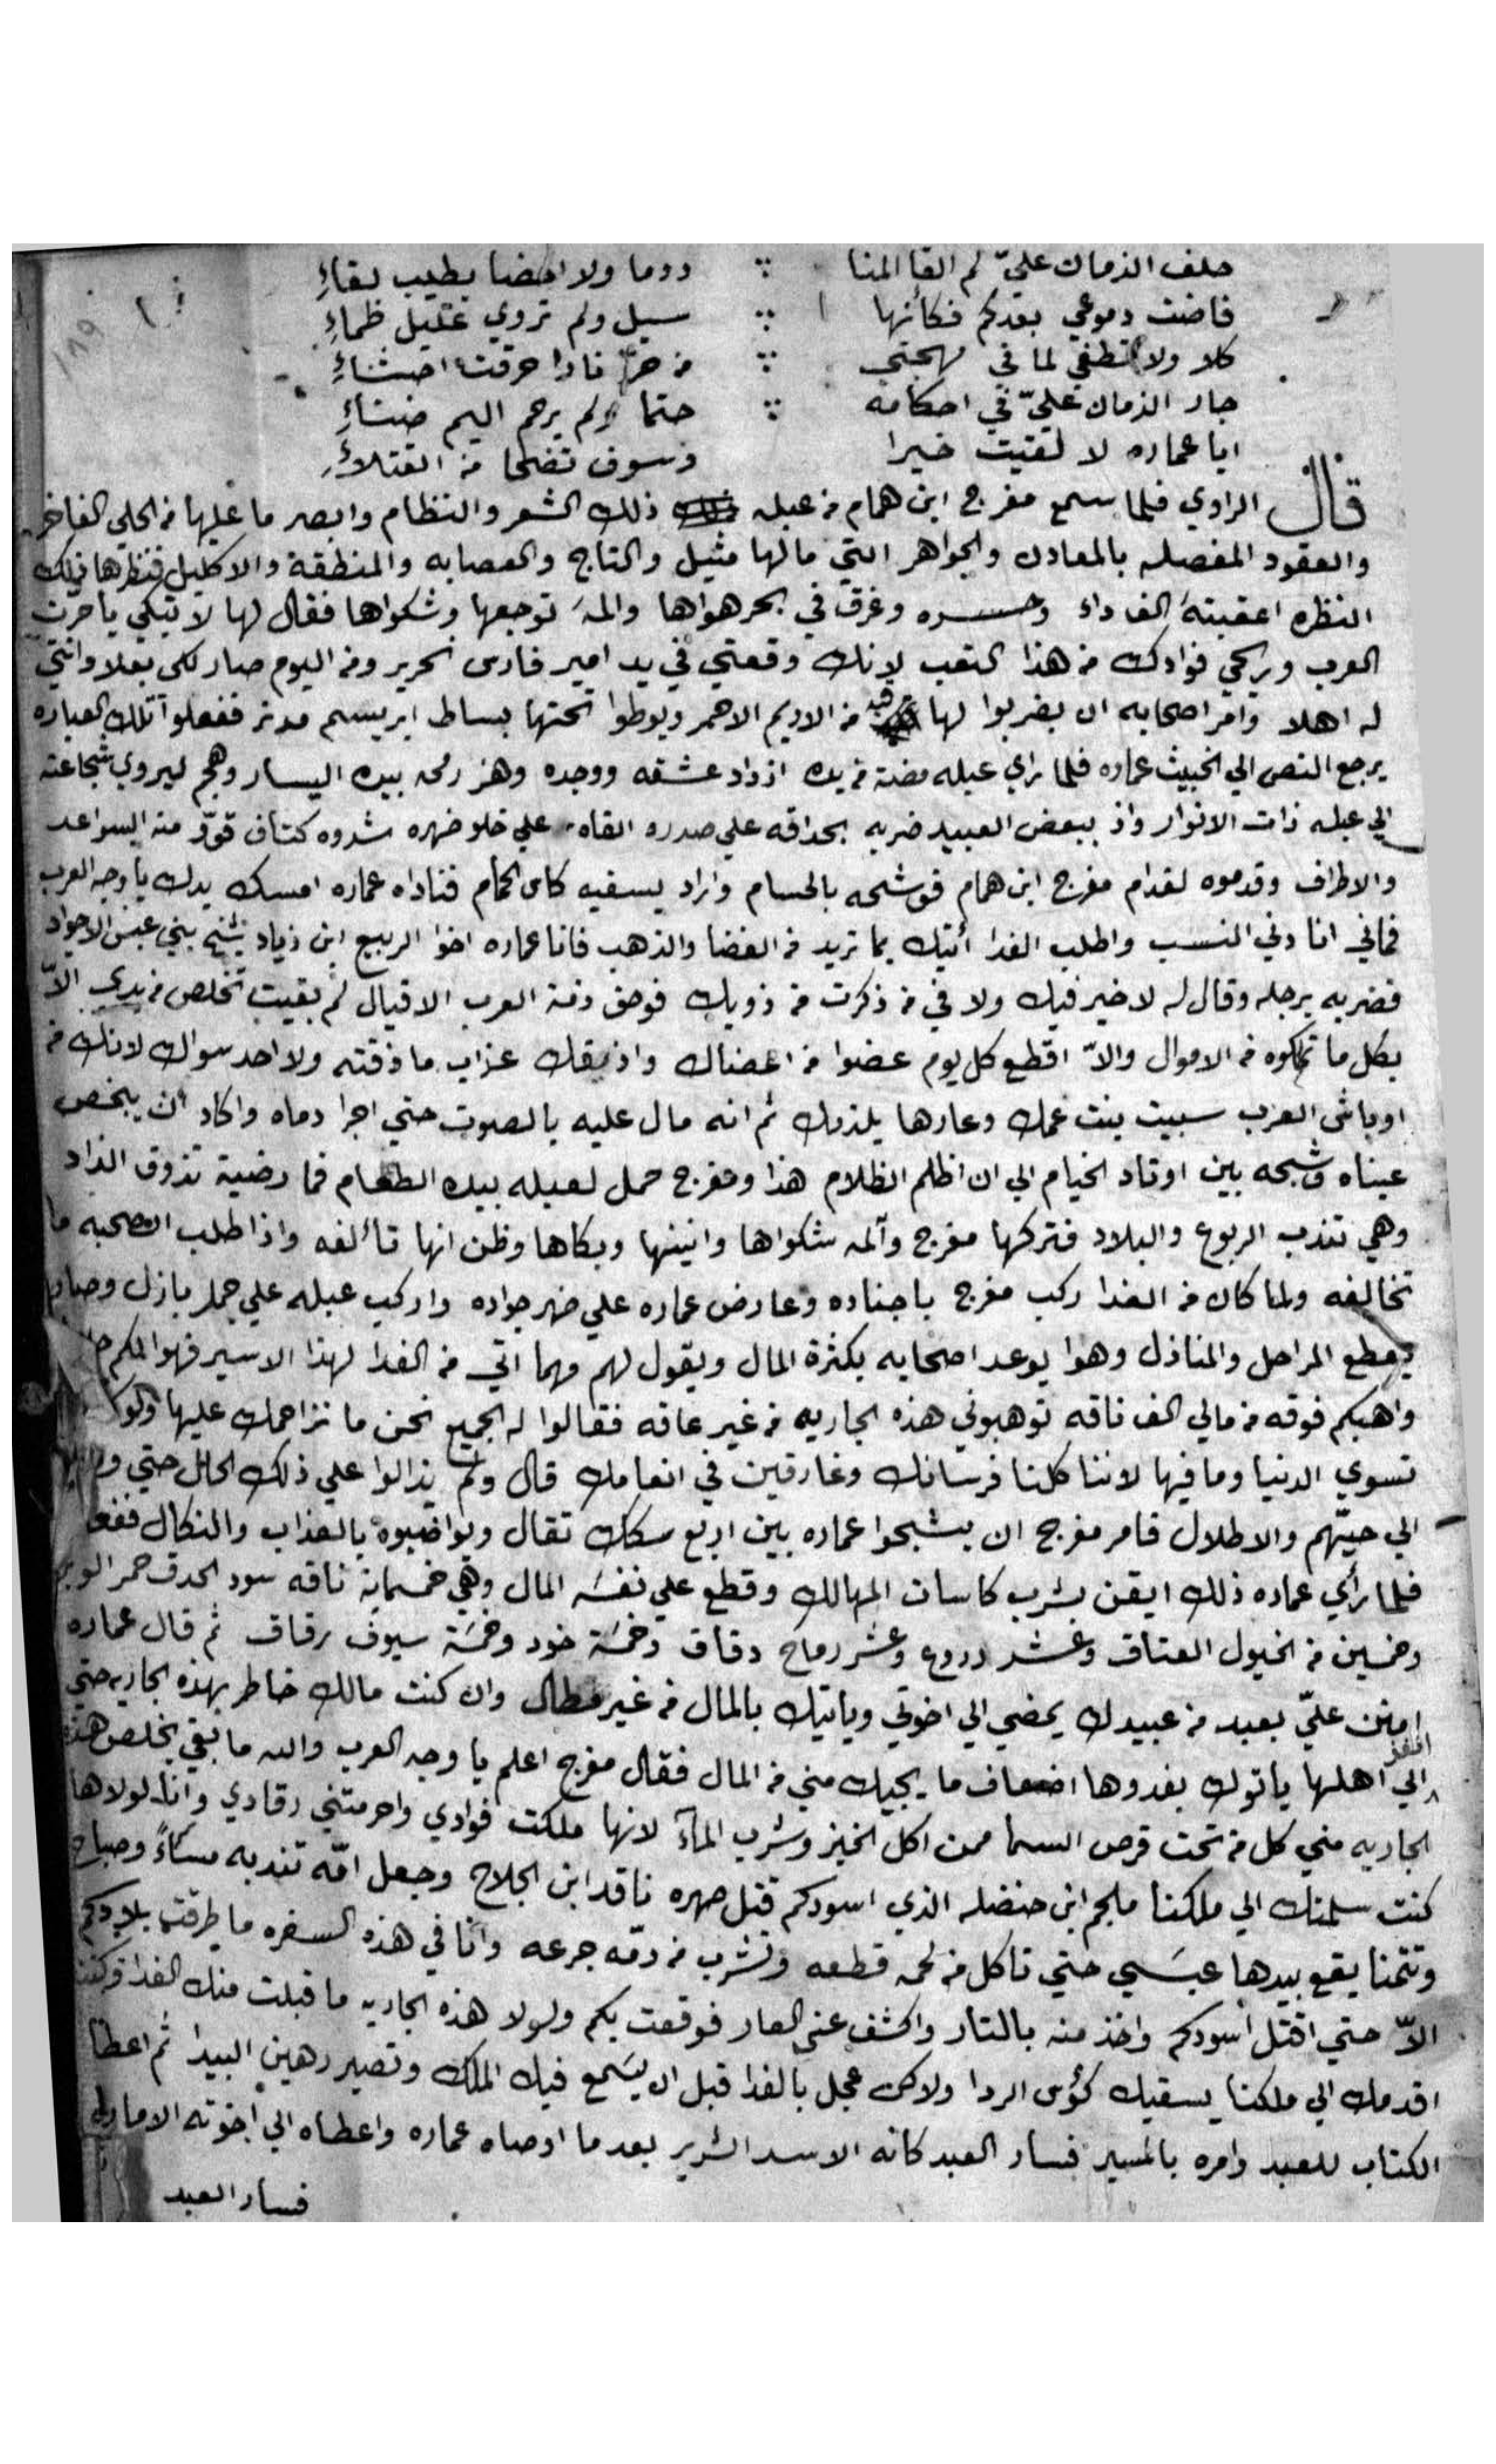 حلف الزمان عليّ لم القا المنا ∴ دوما ولا احضا بطيب لقاءِ
فاضت دموعي بعدكم فكأنها ∴ سيل ولم تروي غليل ظماءِ
كلا ولا تطفي لما في مهجتي ∴ من حرّ نارا حرقت احشاءِ
جار الزمان عليّ في احكامه ∴ حتما ولم يرحم اليم ضناءِ
ايا عماره لا لقيت خيرا وسوف تضحا من القتلاءِ
قال الراوي فلما سمع مفرج ابن همام من عبله ذلك الشعر والنظام وابصر ما عليها من الحلي الفاخر
والعقود المفصله بالمعادن والجواهر التي مالها مثيل والتاج والعصابه والمنطقة والاكليل فنظرها تلك
النظره اعقبته الف داء وحسره وغرق في بحر هواها والمه توجعها وشكواها فقال لها لا تبكي يا حرّت
العرب وريحي فوادك من هذا التعب لانك وقعتي في يد امير فارس نحرير ومن اليوم صار لكي بعلا وانتي
له اهلا وامر اصحابه ان يضربوا لها قبه من الاديم الاحمر ويوطوا تحتها بساط ابريسم مدنر ففعلوا تلك العباره
يرجع النص الي الخبيث عماره فلما راي عبله مضة من يده ازداد عشقه ووجده وهز رمحه بيده اليسار وهجم ليروي شجاعته
الي عبله ذات الانوار واذ ببعض العبيد ضربه بحداقه علي صدره القاه علي خلو ضهره شدوه كتاف قوّ منه السواعد
والاطراف وقدموه لقدام مفرج ابن همام فوشحه بالحسام واراد يسقيه كاس الحمام فناداه عماره امسك يدك يا وجه العرب
فماني انا دني النسب واطلب الفدا أتيك بما تريد من الفضا والذهب فانا عماره اخوا الربيع ابن زياد شيخ بني عبس الاجواد
فضربه برجله وقال له لا خير فيك ولا في من ذكرت من ذويك فوحق ذمة العرب الاقيال لم بقيت تخلص من يدي الاّ
بكل ما تملكوه من الاموال والاّ اقطع كل يوم عضوا من اعضاك واذيقك عزاب ما ذقته ولا احد سواك لانك من
اوباش العرب سبيت بنت عمك وعارها يلزمك ثم انه مال عليه بالصوت حتي اجرا دماه واكاد ان يبخص
عيناه وشبحه بين اوتاد الخيام الي ان اظلم الظلام هذا ومفرج حمل لعبله بيده الطعام فما رضية تذوق الزاد
وهي تندب الربوع والبلاد فتركها مفرج وآلمه شكواها وانينها وبكاها وظن انها تألفه واذا طلب الصحبه ما
تخالفه ولما كان من الغدا ركب مفرج باجناده وعارض عماره علي ضهر جواده واركب عبله علي جمل بازل وصار
يقطع المراحل والمنازل وهوا يوعد اصحابه بكثرة المال ويقول لهم مهما اتي من الفدا لهذا الاسير فهوا لكم
واهبكم فوقه من مالي الف ناقه توهبوني هذه الجاريه من غير عاقه فقالوا له الجميع نحن ما نزاحمك عليها ولو
تسوي الدنيا وما فيها لاننا كلنا فرسانك وغارقين في انعامك قال ولم يزالوا علي ذلك الحال حتي
الي حيّهم والاطلال فامر مفرج ان يشبحوا عماره بين اربع سكك تقال ويواضبوه بالعذاب والنكال
فلما رأي عماره ذلك ايقن بشرب كاسات المهالك وقطع علي نفسه المال وهي خمسماية ناقه سود الحدق حمر الوبر
وخمسين من الخيول العتاق وعشر دروع وعشر رماح دقاق وخمسة خود وخمسة سيوف رقاق ثم قال عماره
امنن عليّ بعبد من عبيدك يمضي الي اخوتي وياتيك بالمال من غير مطال وان كنت مالك خاطر بهذه الجاريه حتي
انفذ الي اهلها ياتوك بفدوها اضعاف ما يجيك مني من المال فقال مفرج اعلم يا وجه العرب والله ما بقي يخلص هذه
الجاريه مني كل من تحت قرص السما ممن اكل الخبز وشرب المآء لانها ملكت فوادي واحرمتني رقادي وانا لولاها
كنت سلمتك الي ملكنا ملجم ابن حنضله الذي اسودكم قتل صهره ناقد ابن الجلاح وجعل امّه تندبه مساءً وصباح
وتتمنا يقع بيدها عبسي حتي تاكل من لحمه قطعه وتشرب من دمّه جرعه وانا في هذه السفره ما طرقت بلادكم
الاّ حتي اقتل اسودكم واخذ منه بالتار واكشف عني العار فوقعت بكم ولولا هذه الجاريه ما قبلت منك الفدا وكنت
اقدمك الي ملكنا يسقيك كؤس الردا ولاكن عجل بالفدا قبل ان يسمع فيك الملك وتصير رهين البيدا ثم اعطا
الكتاب للعبد وامره بالمسير فسار العبد كانه الاسد الشرير بعد ما اوصاه عماره واعطاه الي اخوته الاماره
فسار العبد